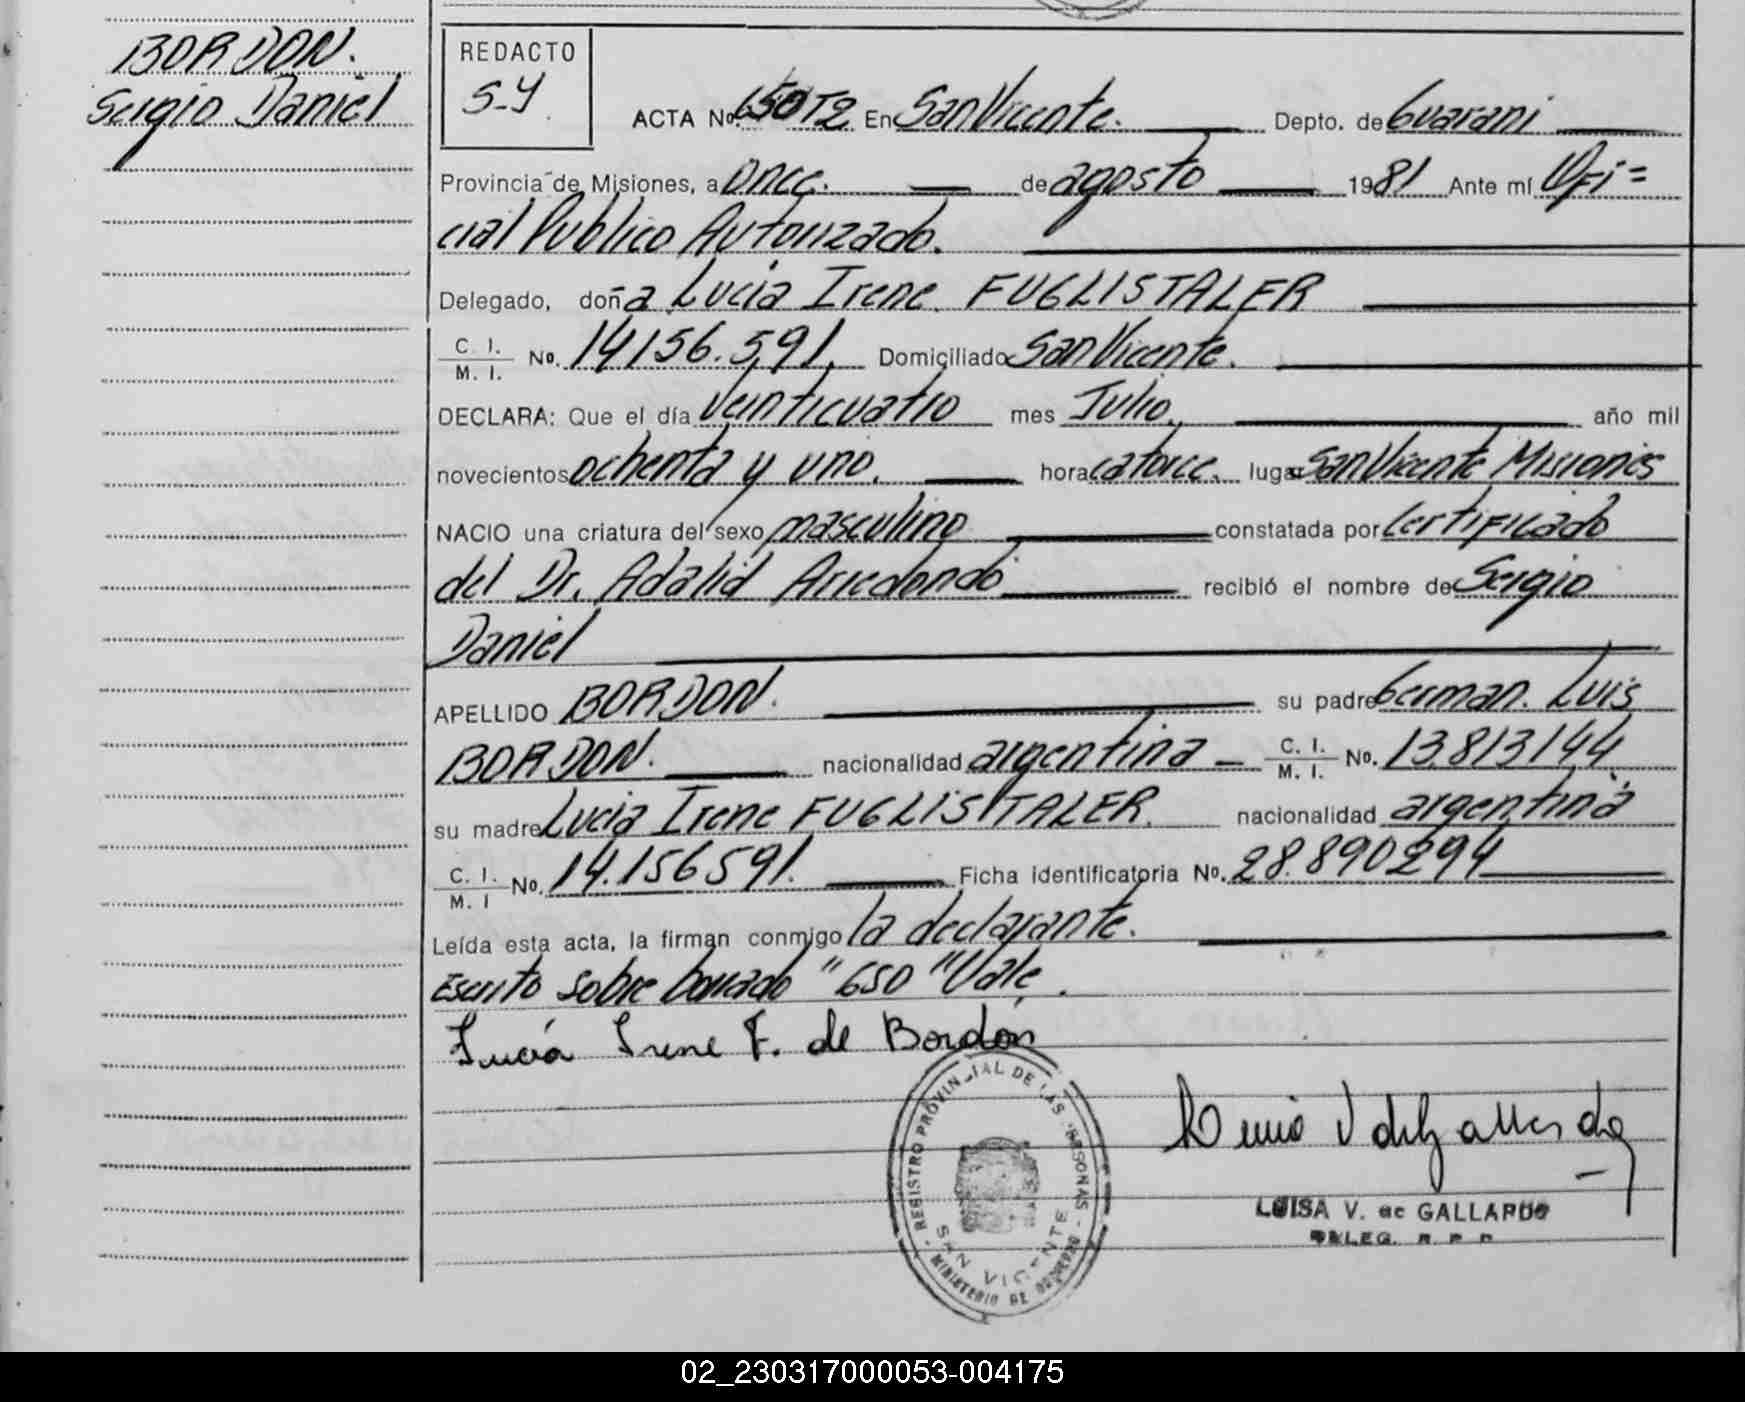 BORDON.
Sergio Daniel
REDACTO
S-Y
ACTA No. 650T2 En San Vicente. Depto. de Guarani
Provincia de Misiones, a once. de agosto 1981 Ante mí Ofi=
cial Publico Autorizado.
Delegado, doña Lucia Irene FUGLISTALER
C. I. / M. I. No. 14156.591. Domiciliado San Vicente.
DECLARA: Que el día veinticuatro mes Julio. año mil
novecientos ochenta y uno. hora catorce. lugar San Vicente Misiones
NACIO una criatura del sexo masculino constatada por Certificado
del Dr. Adalid Arredondo recibió el nombre de Sergio
Daniel
APELLIDO BORDON. su padre German Luis
BORDON. nacionalidad argentina C. I. / M. I. No. 13.813144
su madre Lucia Irene FUGLISTALER. nacionalidad argentina
C. I. / M. I No. 14.156591. Ficha identificatoria No. 28.890294
Leída esta acta, la firman conmigo la declarante.
Escrito sobre borrado "650" Vale.
Lucía Irene F. de Bordón
REGISTRO PROVINCIAL DE LAS PERSONAS
SAN VICENTE
MINISTERIO DE GOBIERNO
LUISA V. de GALLARDO
DELEG. R. P. P.
02_230317000053-004175